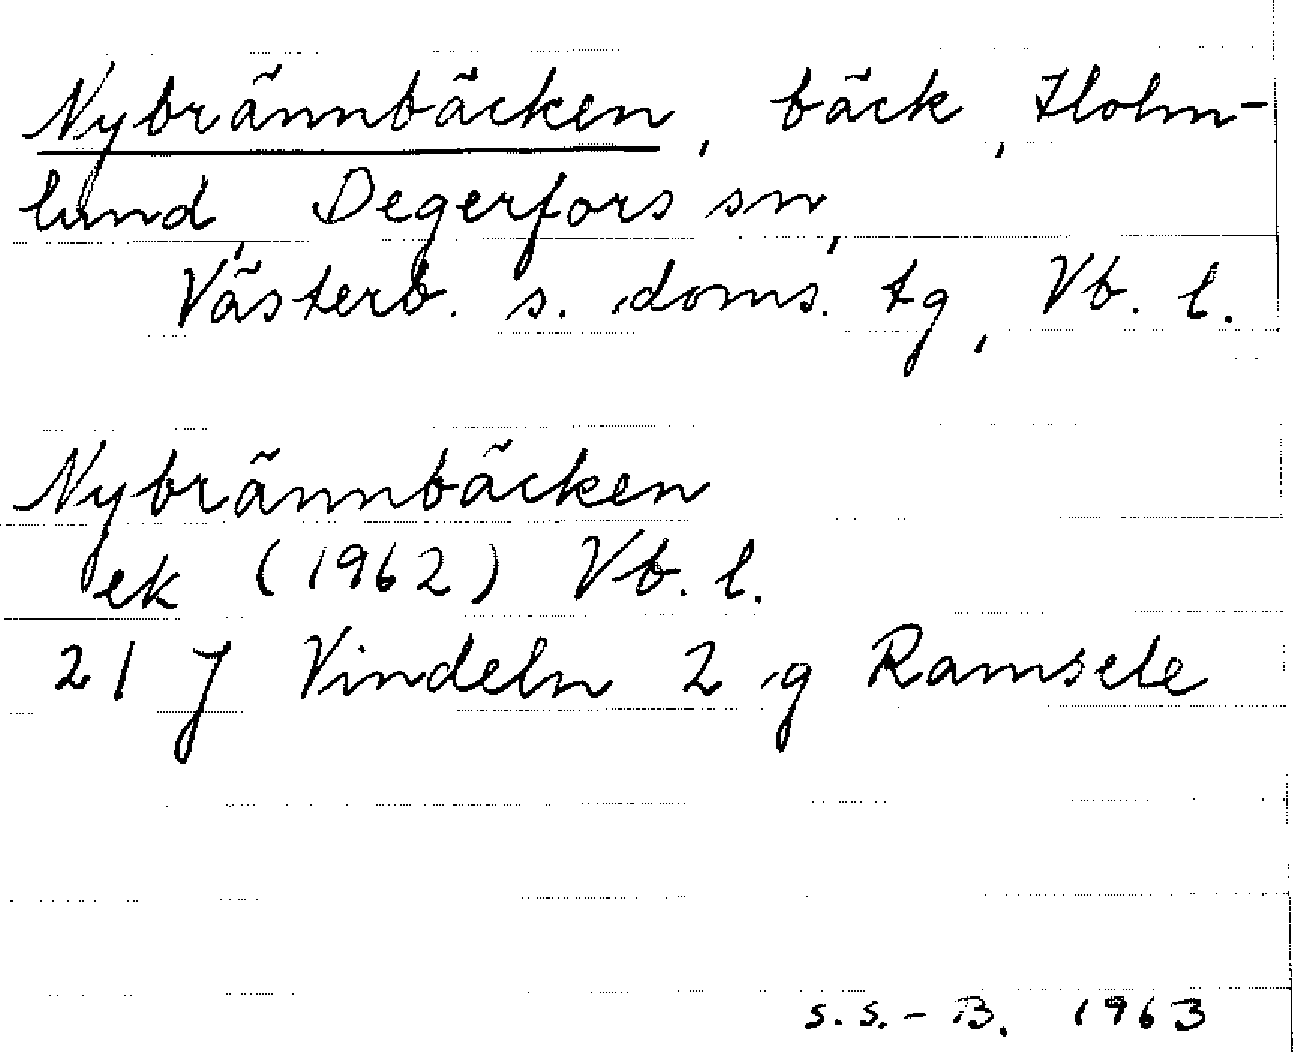 Nybrännbäcken, bäck, Holm-
lund, Degerfors sn,
Västerb. s. doms. tg, Vb. l.
Nybrännbäcken
ek (1962) Vb. l.
21 J Vindeln 2 g Ramsele
S.S.-B. 1963